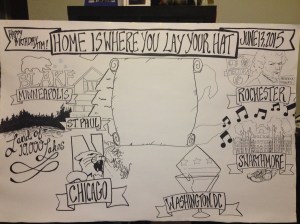 HAPPY
BIRTHDAY
HOME IS WHERE YOU LAY YOUR HAT
JUNE 13, 2015
MINNEAPOLIS
ROCHESTER
ST. PAUL
Land of
10,000 Lakes
SWARTHMORE
N
CHICAGO
WASHINGTON, DC